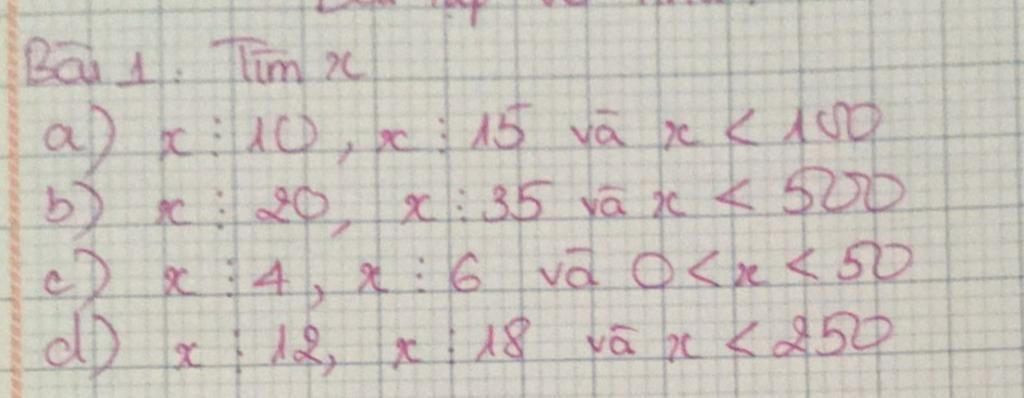 Bài 1. Tìm x
a) x ⋮ 10, x ⋮ 15 và x < 100
b) x ⋮ 20, x ⋮ 35 và x < 500
c) x ⋮ 4, x ⋮ 6 và 0 < x < 50
d) x ⋮ 12, x ⋮ 18 và x < 250